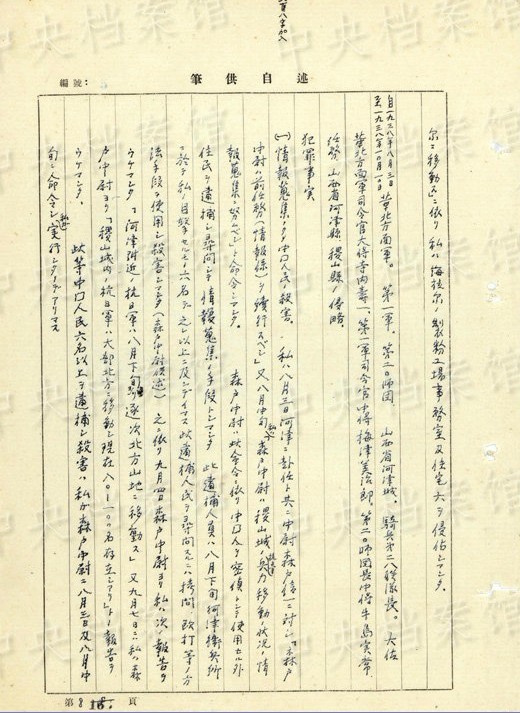 述自供筆
編號:
尔ニ移動ス」ニ依リ私ハ海拉尓ノ製粉工場事務室及住宅六ヲ侵佔シマシタ。
自一九三八年八月三日 華北方面軍。第一軍。第二〇師団。山西省河津城。騎兵第二八聯隊長。大佐
至一九三八年一〇月一〇日
華北方面軍司令官大将寺内寿一、第一軍司令官中将梅津美治郎、第二〇師団長中将牛島実常
任務 山西省河津縣稷山縣ノ侵略。
犯罪事実
(一)情報蒐集ノタメ中国人民ノ殺害。私ハ八月三日河津ニ赴任ト共ニ中尉森戸
中尉ハ前任務(情報係)ヲ續行スベシ 又八月中旬私ハ森戸中尉ハ稷山城ノ兵力移動ノ状況ノ情
報蒐集ニ努ムベシト命令シマシタ。森戸中尉ハ此命令ニ依リ中国人ヲ密偵トシテ使用スル外
住民ヲ逮捕シ尋問シテ情報蒐集ノ手段トシマシタ 此逮捕人員ハ八月下旬河津衛兵所
ニ於テ私ノ目撃セルモノ六名デ之レ以上ニ及ンデイマス 此逮捕人民ヲ尋問スルニハ拷問、殴打等ノ方
法手段ヲ使用シ殺害シマシタ(森戸中尉供述) 之ニ依リ九月四日森戸中尉ヨリ私ハ次ノ報告ヲ
ウケマシタ「河津附近ノ抗日軍ハ八月下旬逐次北方山地ニ移動ス」又九月七日ニハ私ハ森
戸中尉ヨリ「稷山城内ノ抗日軍ハ大部北方ニ移動シ現在八〇-一〇〇名存在シアリ」トノ報告ヲ
ウケマシタ。此等中国人民六名以上ヲ逮捕シ殺害ハ私ガ森戸中尉ニ八月三日及八月中
旬ニ命令シ実行シタノデアリマス
第 8 頁